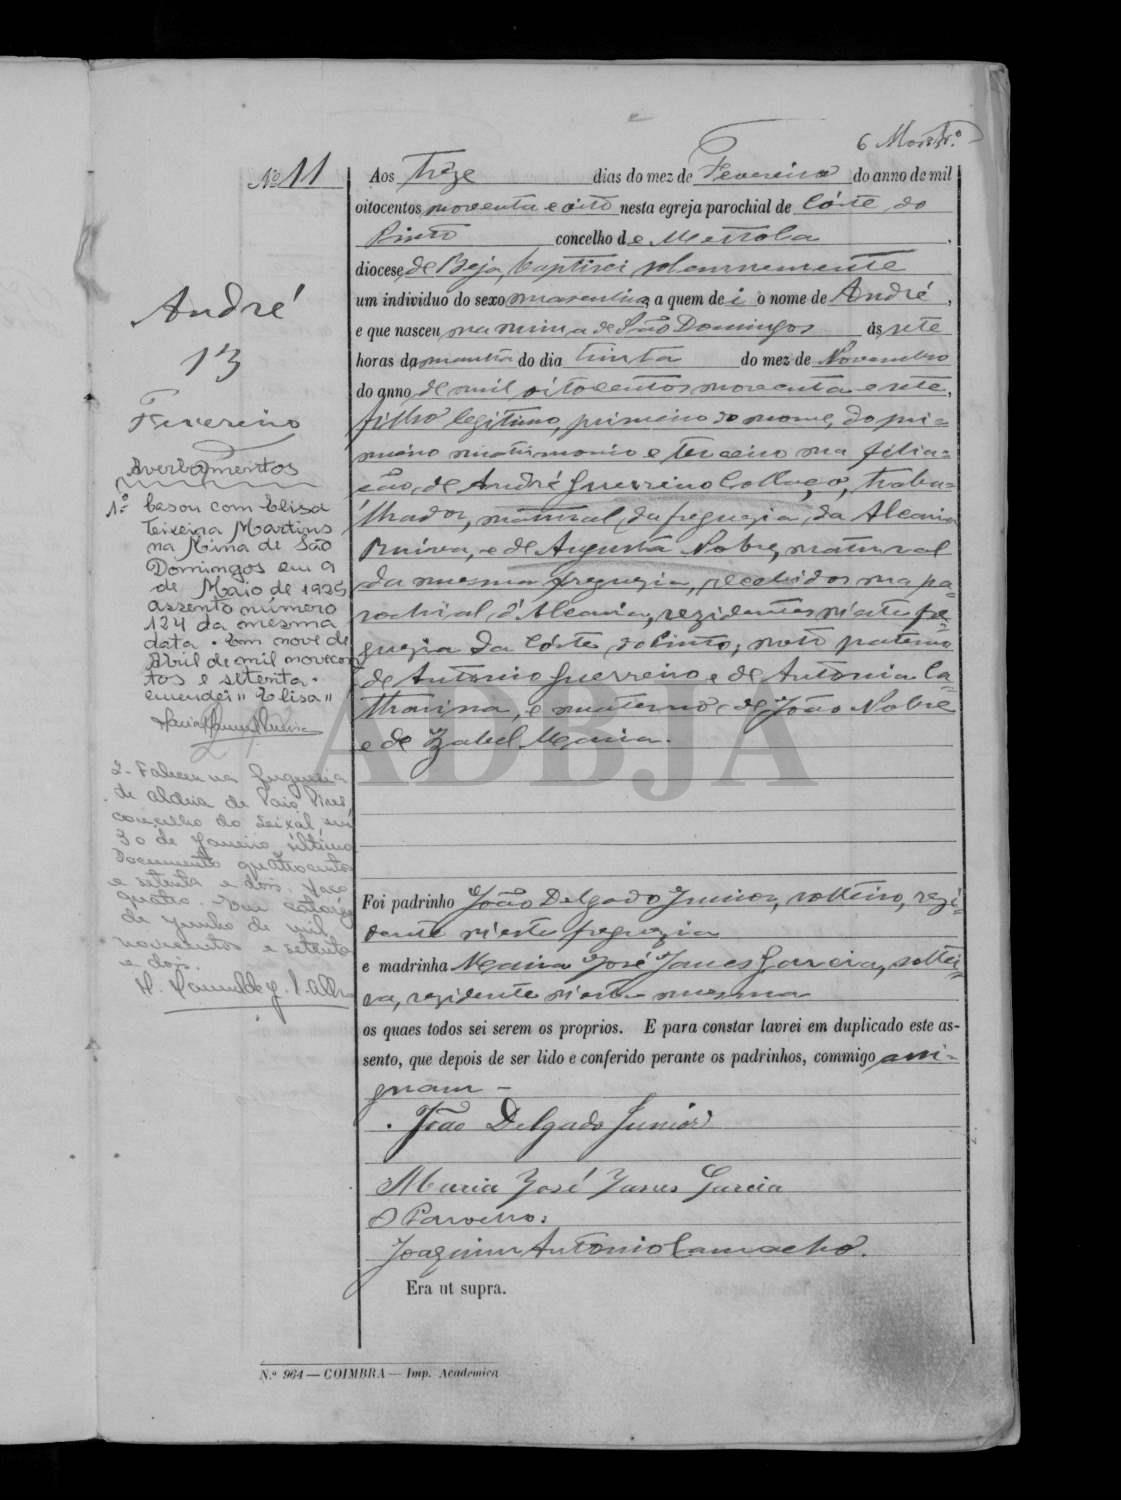 Nº 11
Aos Treze dias do mez de Fevereiro do anno de mil
oitocentos noventa e oito nesta egreja parochial de Côrte do
Pinto concelho de Mertola,
diocese de Beja, baptisei solemnemente
um individuo do sexo masculino, a quem dei o nome de André,
e que nasceu na mina de São Domingos ás sete
horas da manhã do dia trinta do mez de Novembro
do anno de mil oitocentos noventa e sete,
filho legitimo, primeiro do nome, do pri-
meiro matrimonio e terceiro na filia-
ção, de André Guerreiro Collaço, traba-
lhador, natural da freguezia da Alcaria
Ruiva, e de Augusta Nobre, natural
da mesma freguezia, recebidos na pa-
rochial d'Alcaria, rezidentes n'esta fre-
guezia da Côrte do Pinto; neto paterno
de Antonio Guerreiro e de Antonia Ca-
tharina, e materno de João Nobre
e de Izabel Maria.
Foi padrinho João Delgado Junior, solteiro, rezi-
dente n'esta freguezia
e madrinha Maria José Janes Garcia, soltei-
ra, rezidente n'esta mesma
os quaes todos sei serem os proprios. E para constar lavrei em duplicado este as-
sento, que depois de ser lido e conferido perante os padrinhos, commigo assi-
gnam -
João Delgado Junior
Maria José Janes Garcia
O Parocho:
Joaquim Antonio Camacho.
Era ut supra.
André
13
Fevereiro
Averbamentos
1.º Casou com Elisa
Teixeira Martins
na Mina de São
Domingos em 9
de Maio de 1925
assento número
124 da mesma
data. Em nove de
Abril de mil novecen
tos e setenta.
emendei "Elisa"
2. Faleceu na freguesia
de Aldeia de Paio Pires,
concelho do Seixal, em
30 de Janeiro último
Documento quatrocentos
e setenta e dois, maço
quatro. Em catorze
de Junho de mil
novecentos e setenta
e dois.
N.º 964 — COIMBRA — Imp. Academica
ADBJA